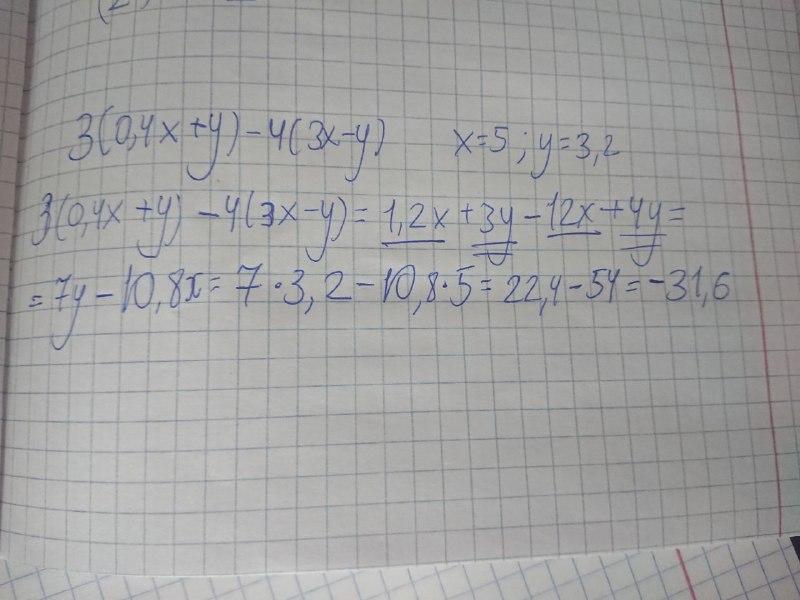 3(0,4x+y)-4(3x-y) x=5; y=3,2
3(0,4x+y)-4(3x-y)= 1,2x+3y-12x+4y=
=7y-10,8x=7·3,2-10,8·5=22,4-54=-31,6